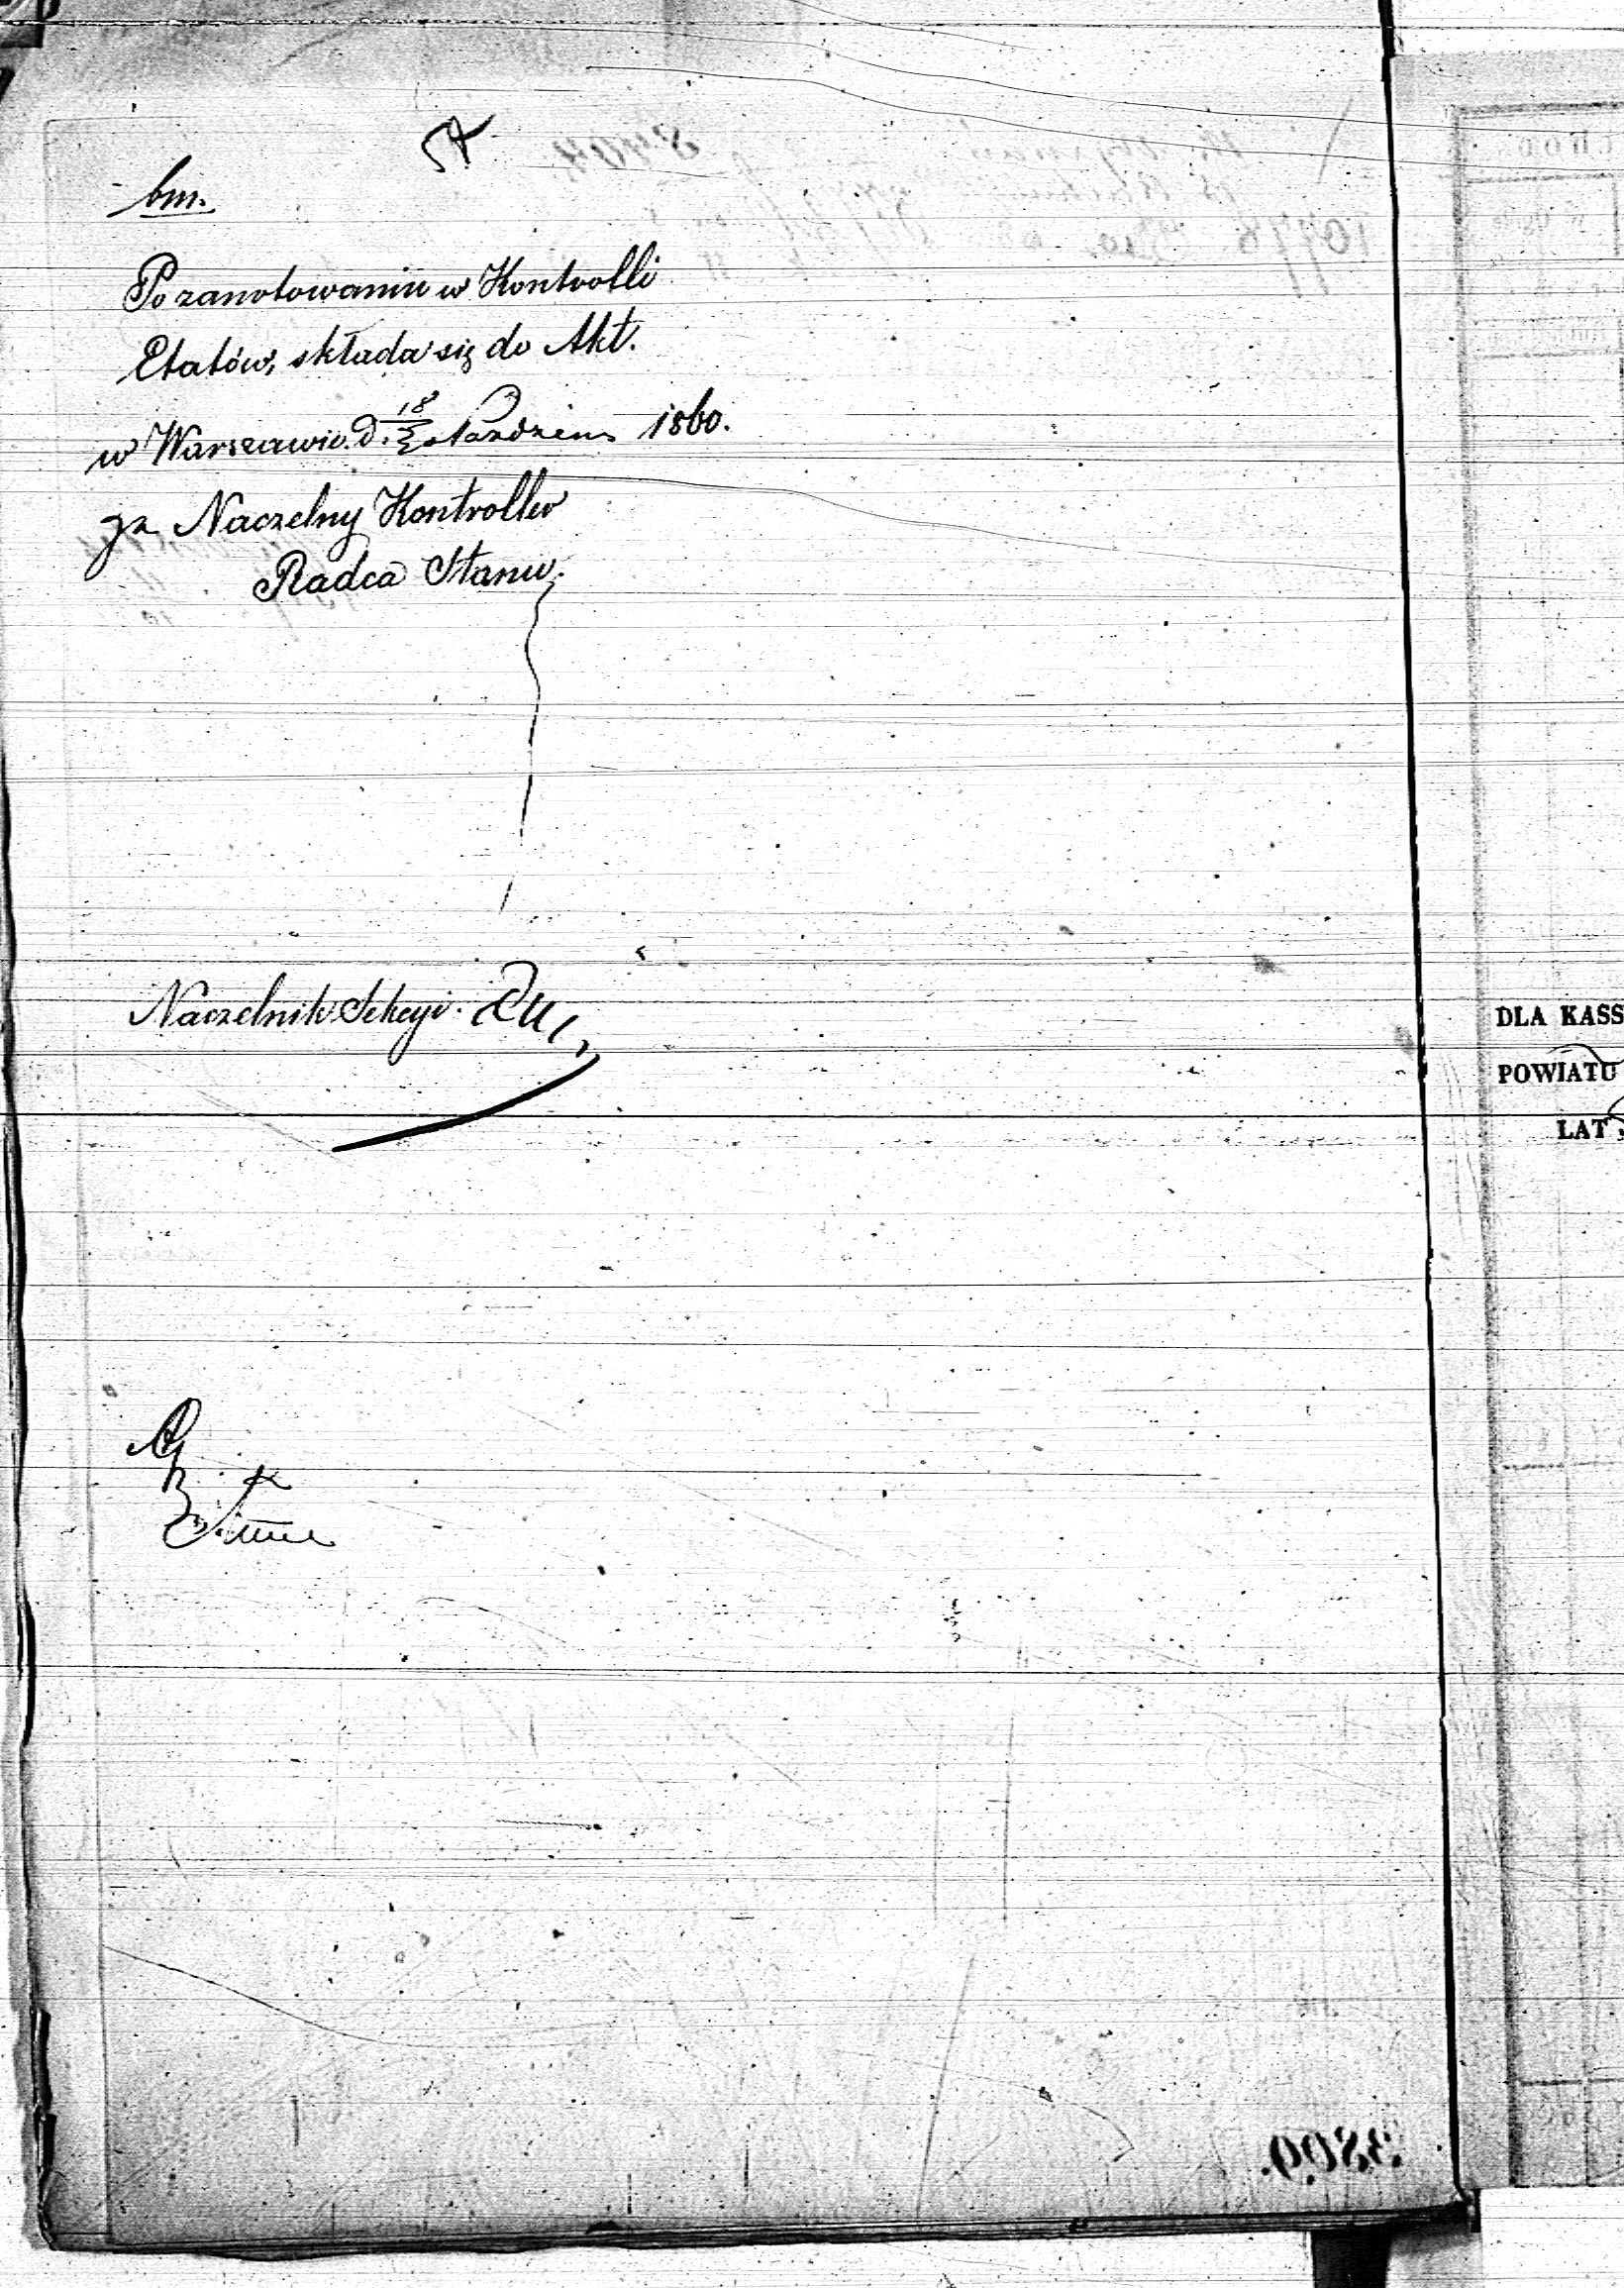 bm.
Po zanotowaniu w Kontrolli
Etatów, składa się do Akt.
w Warszawie d. 18 Paździer 1860.
za Naczelny Kontroller
Radca Stanu.
Naczelnik Sekcyi.
DLA KASS
POWIATU
LAT
3809.